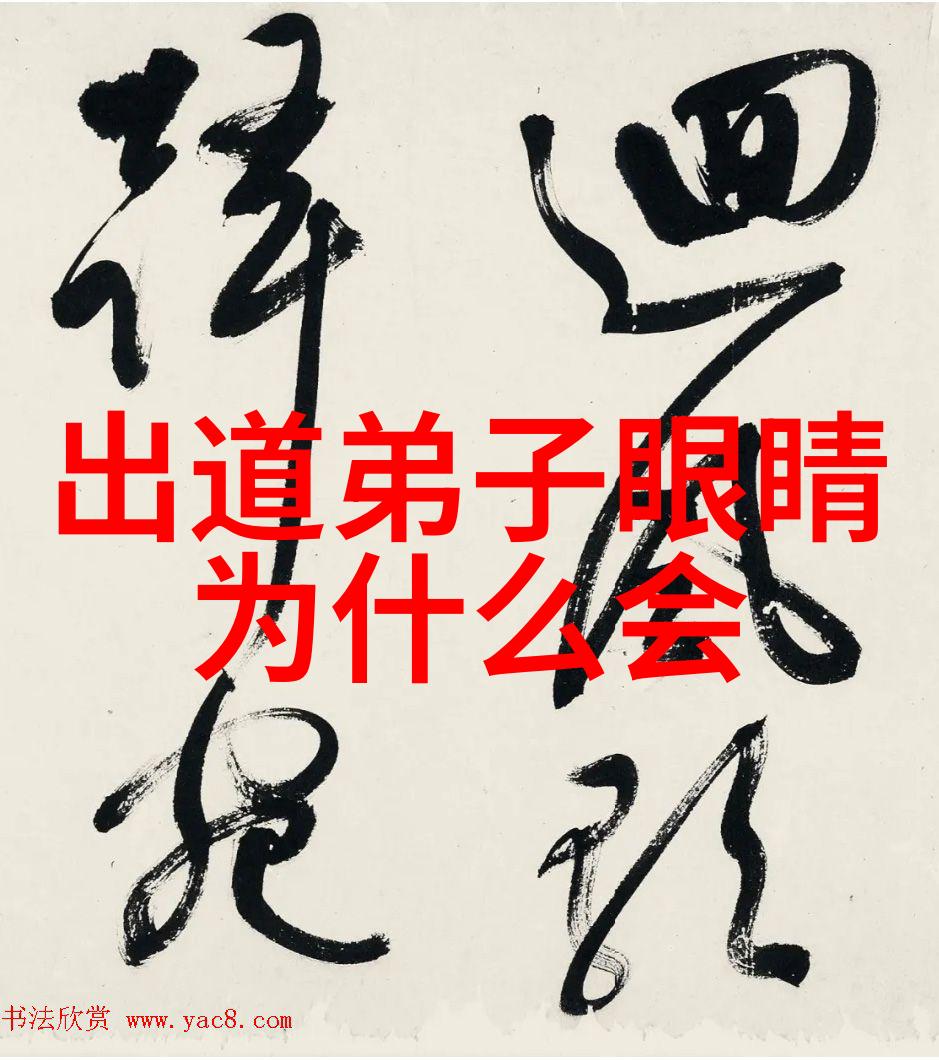 迴風
出道弟子眼睛
为什么会
书法欣赏 www.yac8.com